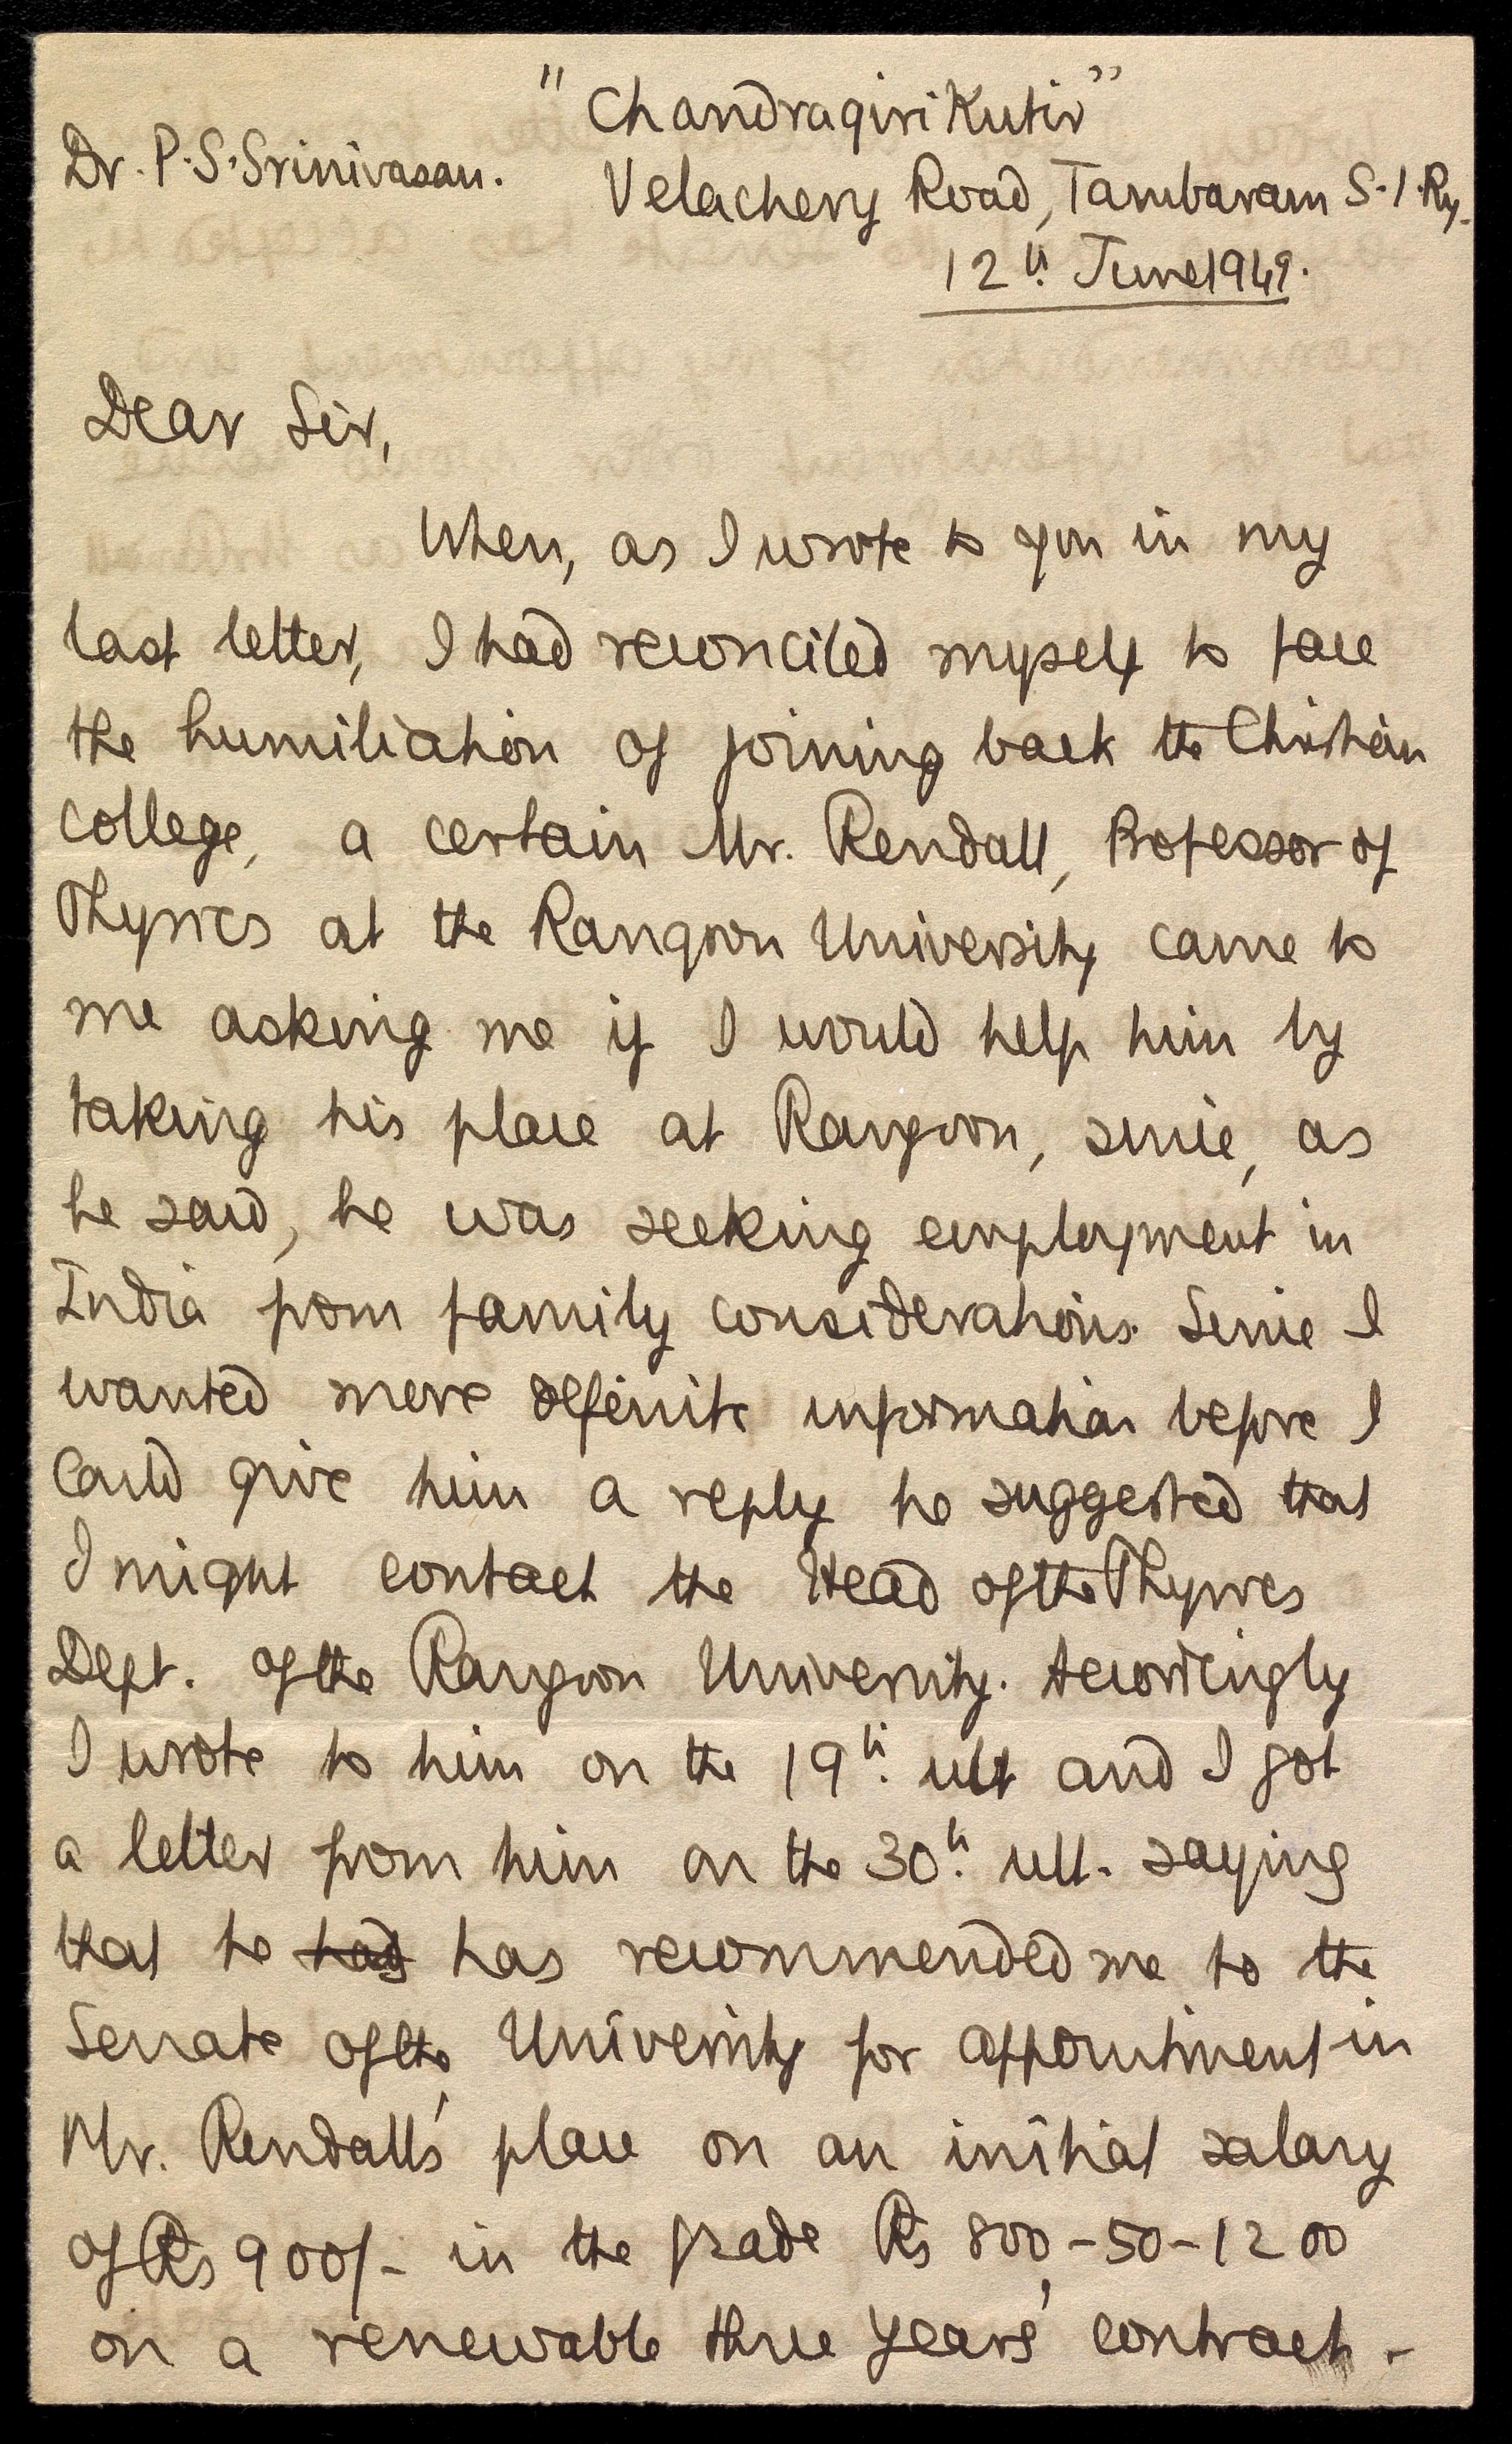 "Chandragiri Kutir"
Dr. P.S. Srinivasan.
Velachery Road, Tambaram S.I.Ry.
12th June 1949.
Dear Sir,
When, as I wrote to you in my
last letter, I had reconciled myself to face
the humiliation of joining back the Christian
College, a certain Mr. Rendall, Professor of
Physics at the Rangoon University came to
me asking me if I would help him by
taking his place at Rangoon, since, as
he said, he was seeking employment in
India from family considerations. Since I
wanted more definite information before I
could give him a reply he suggested that
I might contact the Head of the Physics
Dept. of the Rangoon University. Accordingly
I wrote to him on the 19th ult and I got
a letter from him on the 30th ult. saying
that he had has recommended me to the
Senate of the University for appointment in
Mr. Rendall's place on an initial salary
of Rs 900/- in the grade Rs 800-50-1200
on a renewable three years' contract.-